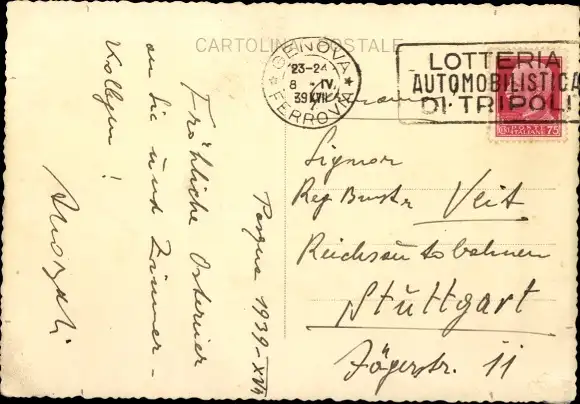 CARTOLINA POSTALE
GENOVA
23-24
8 - IV
39 XVII
FERROVIA
LOTTERIA
AUTOMOBILISTICA
DI TRIPOLI
75
Pasqua 1939-XVII
Fröhliche Ostereier
an Sie und Zimmer-
kollegen !
Signor
Reg. Bmstr Veit
Reichsautobahnen
Stuttgart
Jägerstr. 11